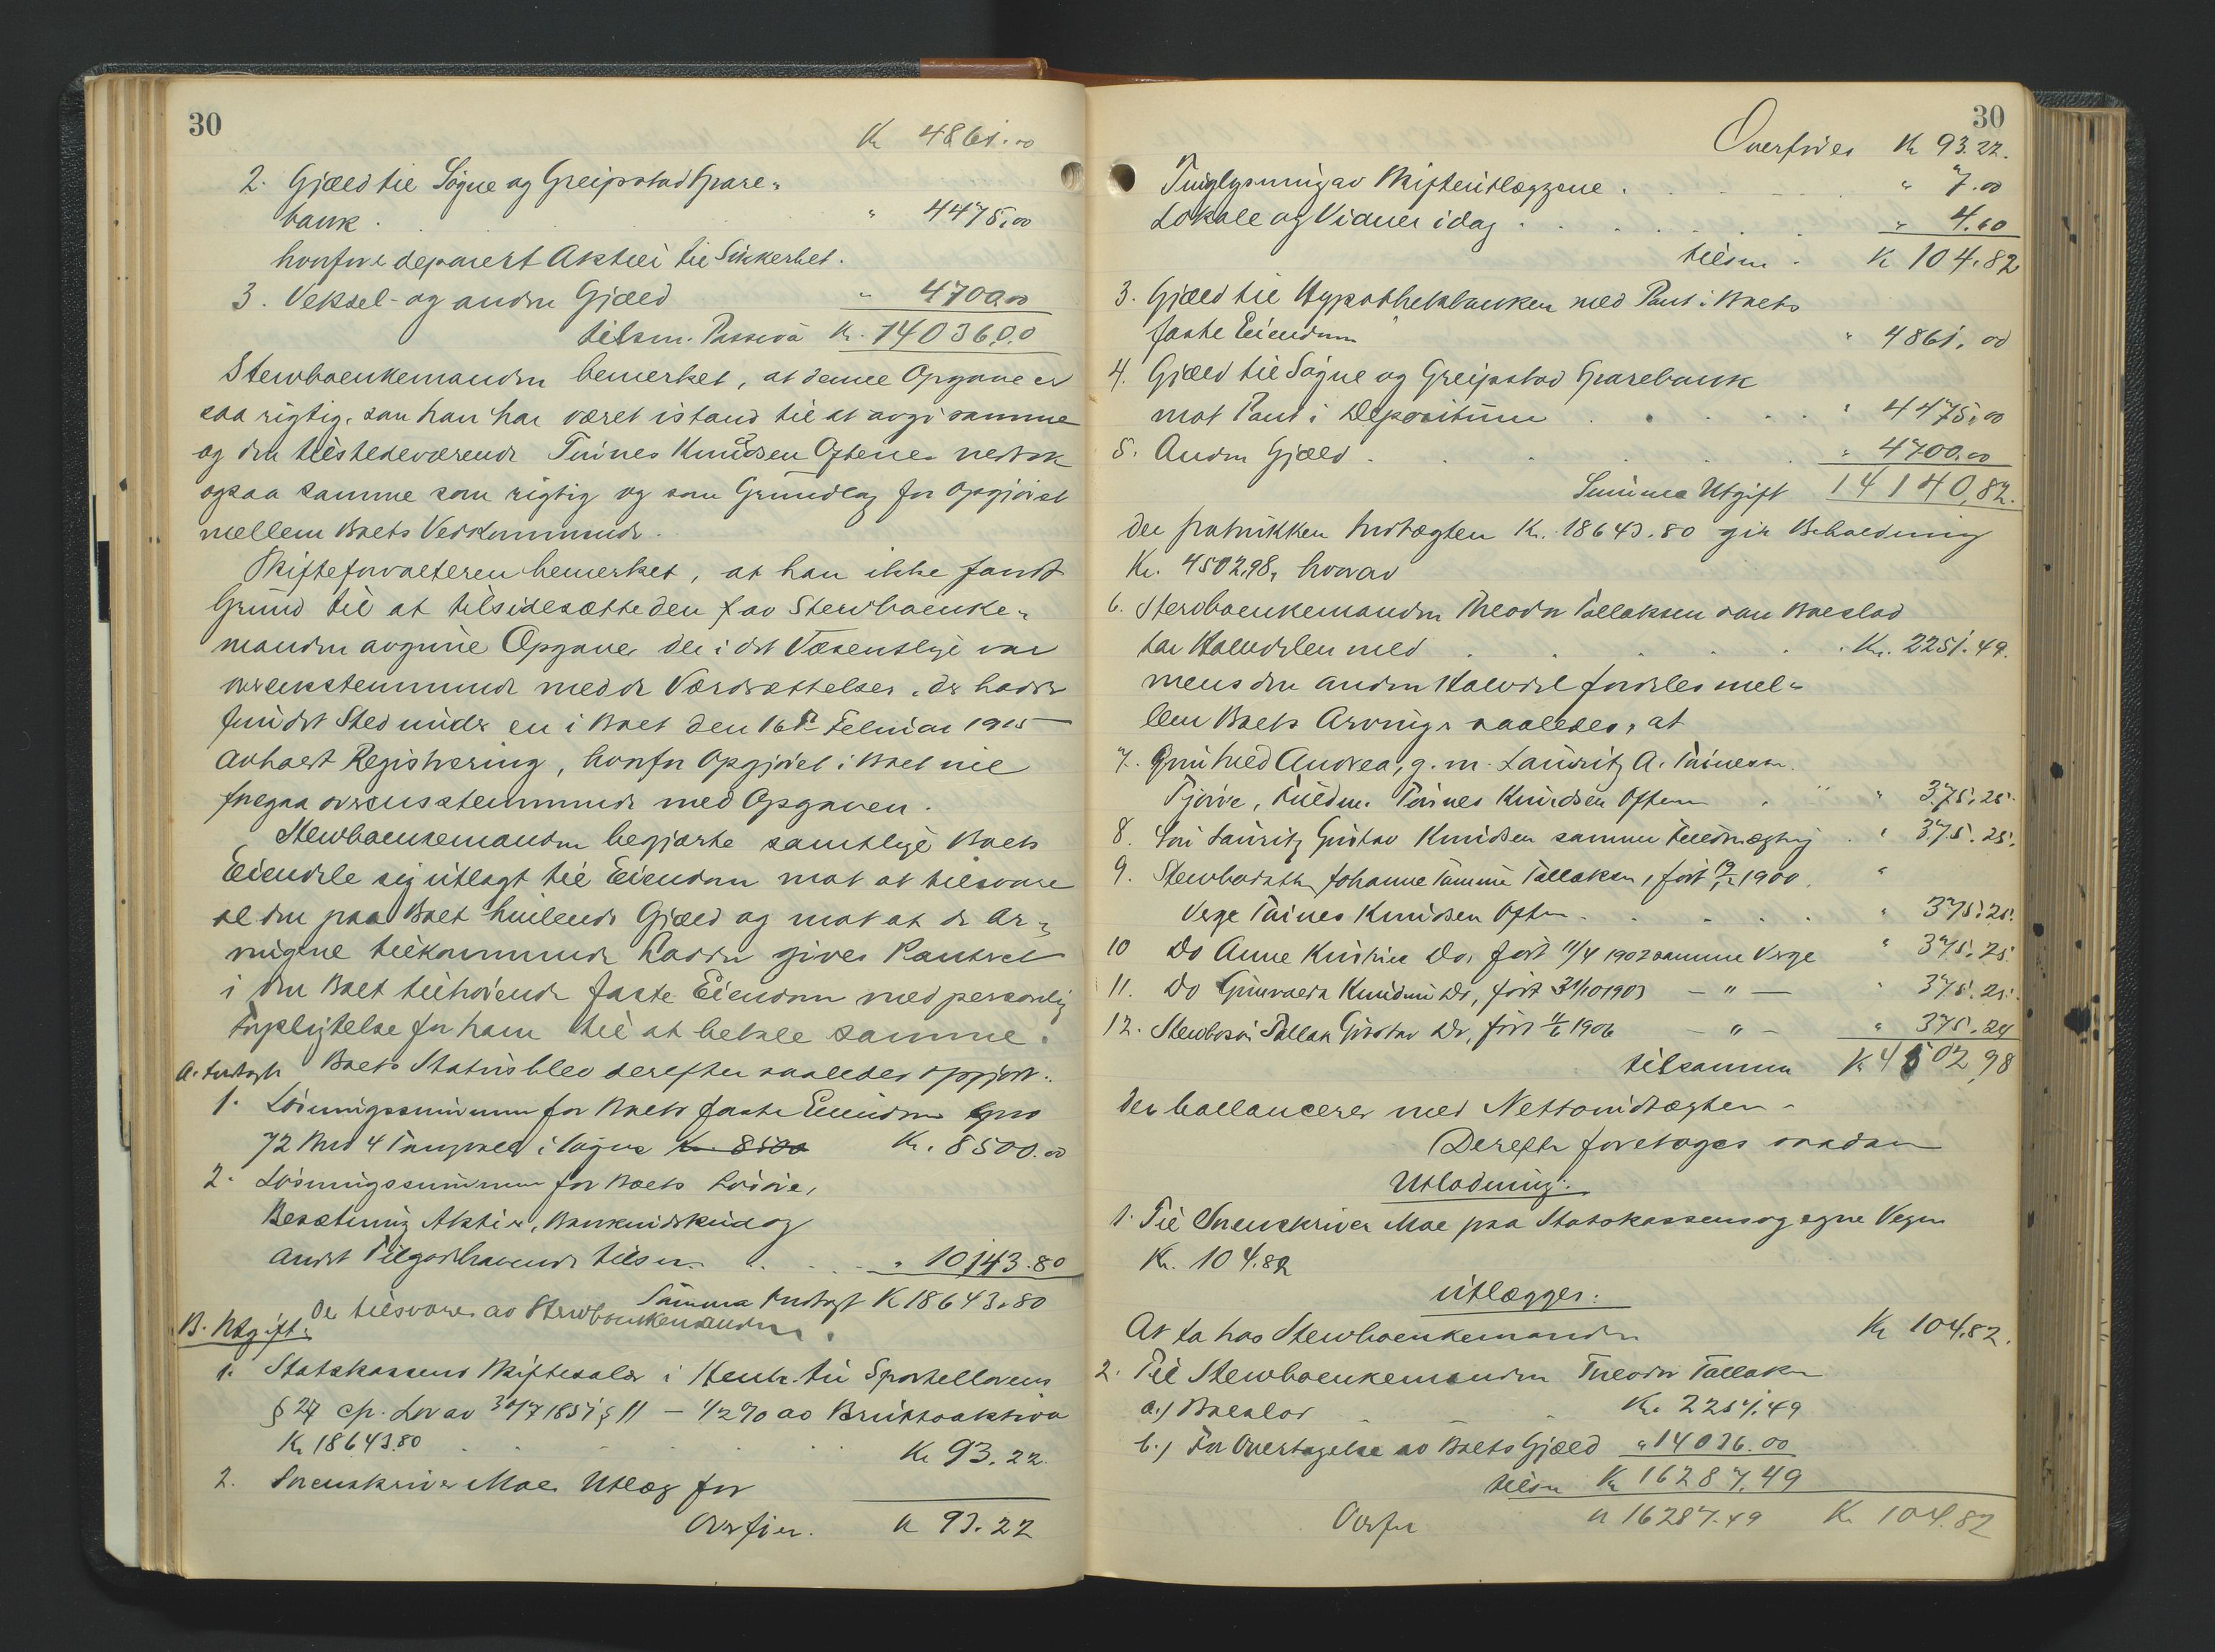 30
Kr 4861.00
2. Gjæld til Søgne og Greipstad Spare-
bank . . . " 4475,00
hvorfor deponert Aktier til Sikkerhet.
3. Veksel- og anden Gjæld " 4700,00
tilsm. Passiva Kr. 14036,00
Stervboenkemanden bemerket, at denne Opgave er
saa rigtig, som han har været istand til at avgi samme
og den tilstedeværende Tønnes Knudsen Oftenes vedtok
ogsaa samme som rigtig og som Grundlag for Opgjøret
mellem Boets Vedkommende.
Skifteforvalteren bemerket, at han ikke fandt
Grund til at tilsidesætte den fav Stervboenke-
manden avgivne Opgave, der i det Væsentlige var
overensstemmende med de Værdsættelser, der hadde
fundet Sted under en i Boet den 16de Februar 1915
avholdt Registrering, hvorfor Opgjøret i Boet vil
foregaa overensstemmende med Opgaven.
Stervboenkemanden begjærte samtlige Boets
Eiendele sig utlagt til Eiendom mot at tilsvare
al den paa Boet hvilende Gjæld og mot at de Ar-
vingene tilkommende Lodder gives Panteret
i den Boet tilhørende faste Eiendom med personlig
Forpligtelse for ham til at betale samme.
A. Indtægt Boets Status blev derefter saaledes opgjort:
1. Løsningssummen for Boets faste Eiendom Gno
72 Bno 4 Tangvald i Søgne Kr. 8500 Kr. 8500.00
2. Løsningssummen for Boets Løsøre,
Besætning Aktier, Bankindskud og
andet Tilgodehavende tilsm. . . . " 10143.80
Summa Indtægt K 18643.80
De tilsvares av Stervboenkemanden.
B. Utgift:
1. Statskassens Skiftesalær i Henh. til Sportellovens
§ 27 cfr. Lov av 30/7 1851 § 11 — 1/2 % av Bruttoaktiva
Kr 18643.80 . . . Kr 93.22
2. Sorenskriver Moe Utlæg for
Overføres. Kr 93.22
30
Overføres Kr 93.22.
Tinglysning av Skifteutlæggene . " 7.00
Lokale og Vidner idag . . . " 4.60
tilsm. K 104.82
3. Gjæld til Hypothekbanken med Pant i Boets
faste Eiendom " 4861.00
4. Gjæld til Søgne og Greipstad Sparebank
mot Pant i Depositum . . . " 4475.00
5. Anden Gjæld . . . " 4700.00
Summa Utgift 14140,82.
der fratrukken Indtægten Kr. 18643.80 gir Beholdning
Kr. 4502.98, hvorav
6. Stervboenkemanden Theodor Tallaksen som Boeslod
tar Halvdelen med . . . Kr. 2251.49.
mens den anden Halvdel fordeles mel-
lem Boets Arvinger saaledes, at
7. Gunhild Andrea, g. m. Lauritz A. Tønnesen
Tjørve, Fuldm. Tønnes Knudsen Oftenes . " 375.25.
8. Søn Lauritz Gustav Knudsen samme Fuldmægtig . " 375.25.
9. Stervbodatter Johanne Tomine Tallaksen, født 19/12 1900. "
Verge Tønnes Knudsen Oftenes . . . " 375.25.
10 Do Anne Kristine Do, født 11/4 1902 samme Verge " 375.25.
11. Do Gunvalda Knudine Do, født 31/10 1903 — " — " 375.25.
12. Stervbosøn Tallak Gustav Do, født 11/6 1906 — " — " 375.24
tilsammen Kr 4502,98
der ballancerer med Nettoindtægten.
Derefter foretoges saadan
Utlodning:
1. Til Sorenskriver Moe paa Statskassens og egne Vegne
Kr. 104.82
utlægges:
At ta hos Stervboenkemanden Kr 104.82.
2. Til Stervboenkemanden Theodor Tallaksen
a.) Boeslod . . Kr. 2251.49
b.) For Overtagelse av Boets Gjæld " 14036.00
tilsm Kr 16287.49
Overføres Kr 16287.49 Kr 104.82